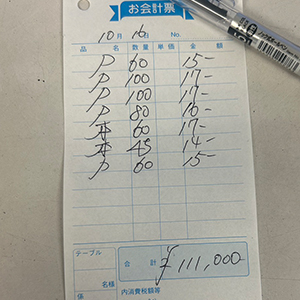 お会計票
10月16日 No.
品名 数量 単価 金額
P 60 15-
P 100 17-
P 100 17-
P 80 16-
本 60 17-
本 45 14-
P 60 15-
テーブル
名様
係
合計 ¥111,000-
内消費税額等